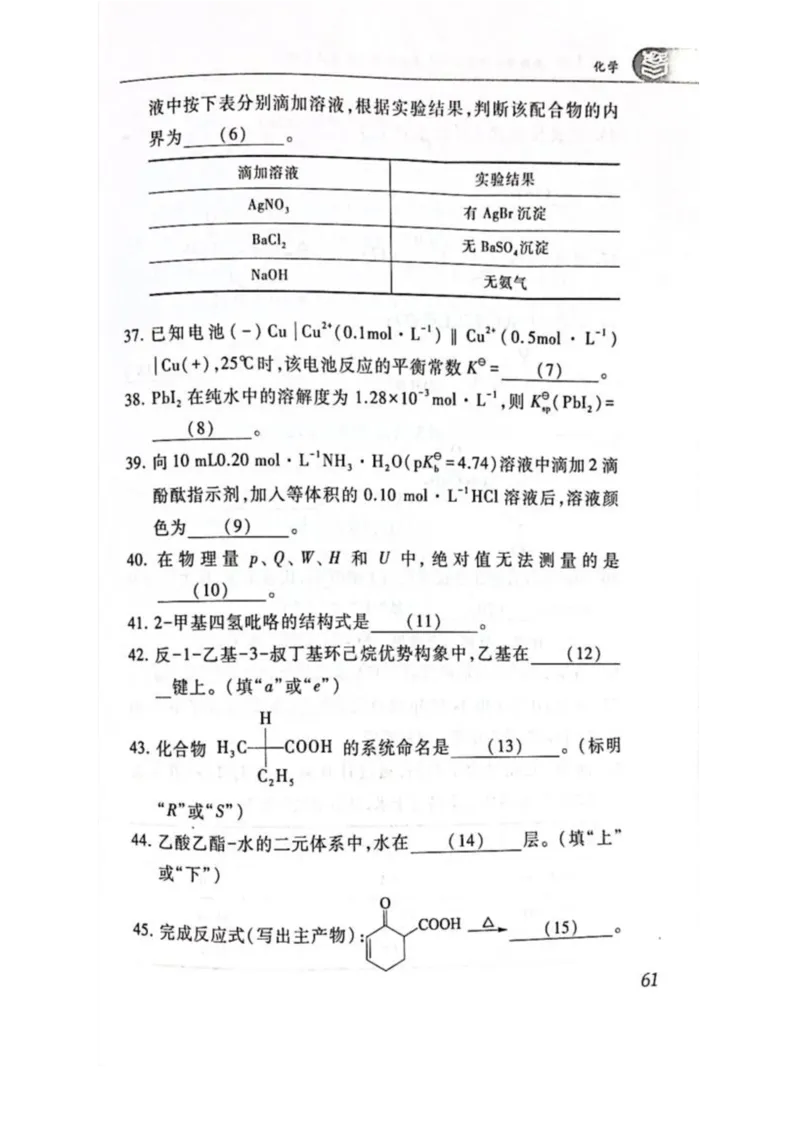 化学
液中按下表分别滴加溶液,根据实验结果,判断该配合物的内
界为 (6) 。
滴加溶液 实验结果
AgNO₃ 有 AgBr 沉淀
BaCl₂ 无 BaSO₄沉淀
NaOH 无氨气
37. 已知电池(-)Cu|Cu²⁺(0.1mol·L⁻¹)‖Cu²⁺(0.5mol·L⁻¹)
|Cu(+),25℃时,该电池反应的平衡常数 K^⊖= (7) 。
38. PbI₂ 在纯水中的溶解度为 1.28×10⁻³mol·L⁻¹,则 K^⊖sp(PbI₂)=
(8) 。
39. 向 10 mL0.20 mol·L⁻¹NH₃·H₂O(pK^⊖b=4.74)溶液中滴加 2 滴
酚酞指示剂,加入等体积的 0.10 mol·L⁻¹HCl 溶液后,溶液颜
色为 (9) 。
40. 在物理量 p、Q、W、H 和 U 中,绝对值无法测量的是
(10) 。
41. 2-甲基四氢吡咯的结构式是 (11) 。
42. 反-1-乙基-3-叔丁基环己烷优势构象中,乙基在 (12)
键上。(填“a”或“e”)
H
43. 化合物 H₃C COOH 的系统命名是 (13) 。(标明
C₂H₅
“R”或“S”)
44. 乙酸乙酯-水的二元体系中,水在 (14) 层。(填“上”
或“下”)
O
45. 完成反应式(写出主产物): COOH △ (15) 。
61